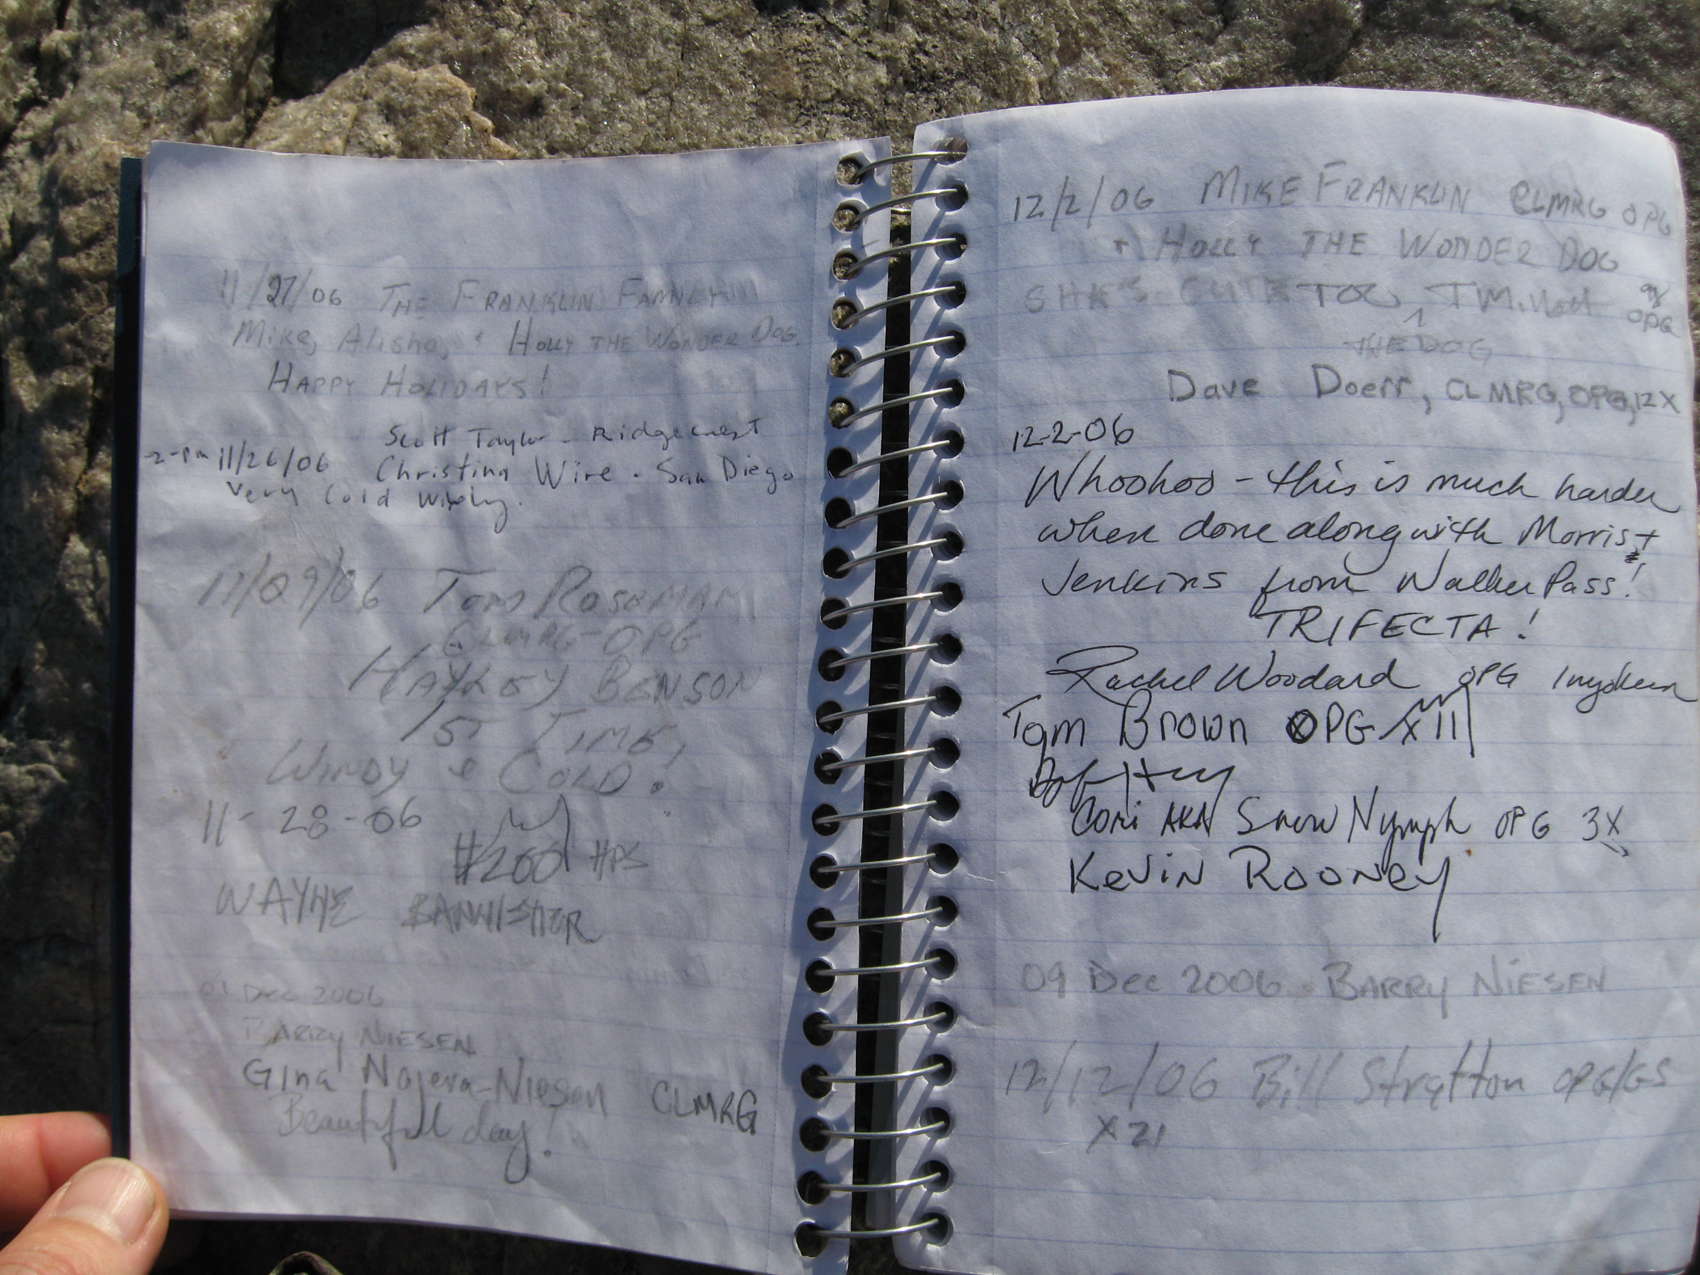 11/27/06 THE FRANKLIN FAMILY
Mike, Alisha, & HOLLY THE WONDER DOG.
HAPPY HOLIDAYS!
Scott Taylor - Ridgecrest
11/26/06 Christina Wire - San Diego
Very Cold Windy.
11/09/06 TOM ROSEMAN
CLMRG OPG
HAYLEY BENSON
1ST TIME!
WINDY & COLD!
11-28-06
#200 HPS
WAYNE BANNISTER
Dec 2006
BARRY NIESEN
Gina Najera-Niesen CLMRG
Beautiful day!
12/2/06 MIKE FRANKLIN CLMRG OPG
+ HOLLY THE WONDER DOG
OPG
THE DOG
Dave Doerr, CLMRG, OPG, 12X
12-2-06
Whoohoo - this is much harder
when done along with Morris +
Jenkins from Walker Pass!
TRIFECTA!
Rachel Woodard OPG Inyokern
Tom Brown OPG X11
Cori AKA Snow Nymph OPG 3X
Kevin Rooney
09 Dec 2006 BARRY NIESEN
12/12/06 Bill Stratton OPG/GS
X21